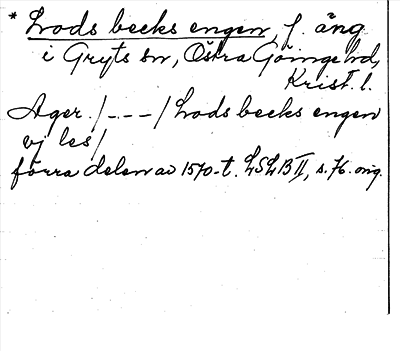 * Lods becks engen, f. äng
i Gryts sn, Östra Göinge hd,
Krist. l.
Ager. /_ _ _/ Lods becks engen
vj les/
förra delen av 1570-t. LSLB II, s. 76. orig.